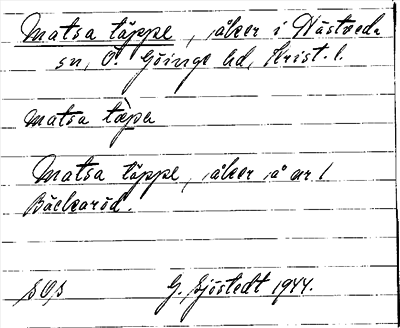 Matsa täppe, åker i Nästveds
sn, Ö. Göinge hd, Krist. l.
matsa täpa
Matsa täppe, åker å nr 1
Bäckaröd.
SOS G. Sjöstedt 1944.